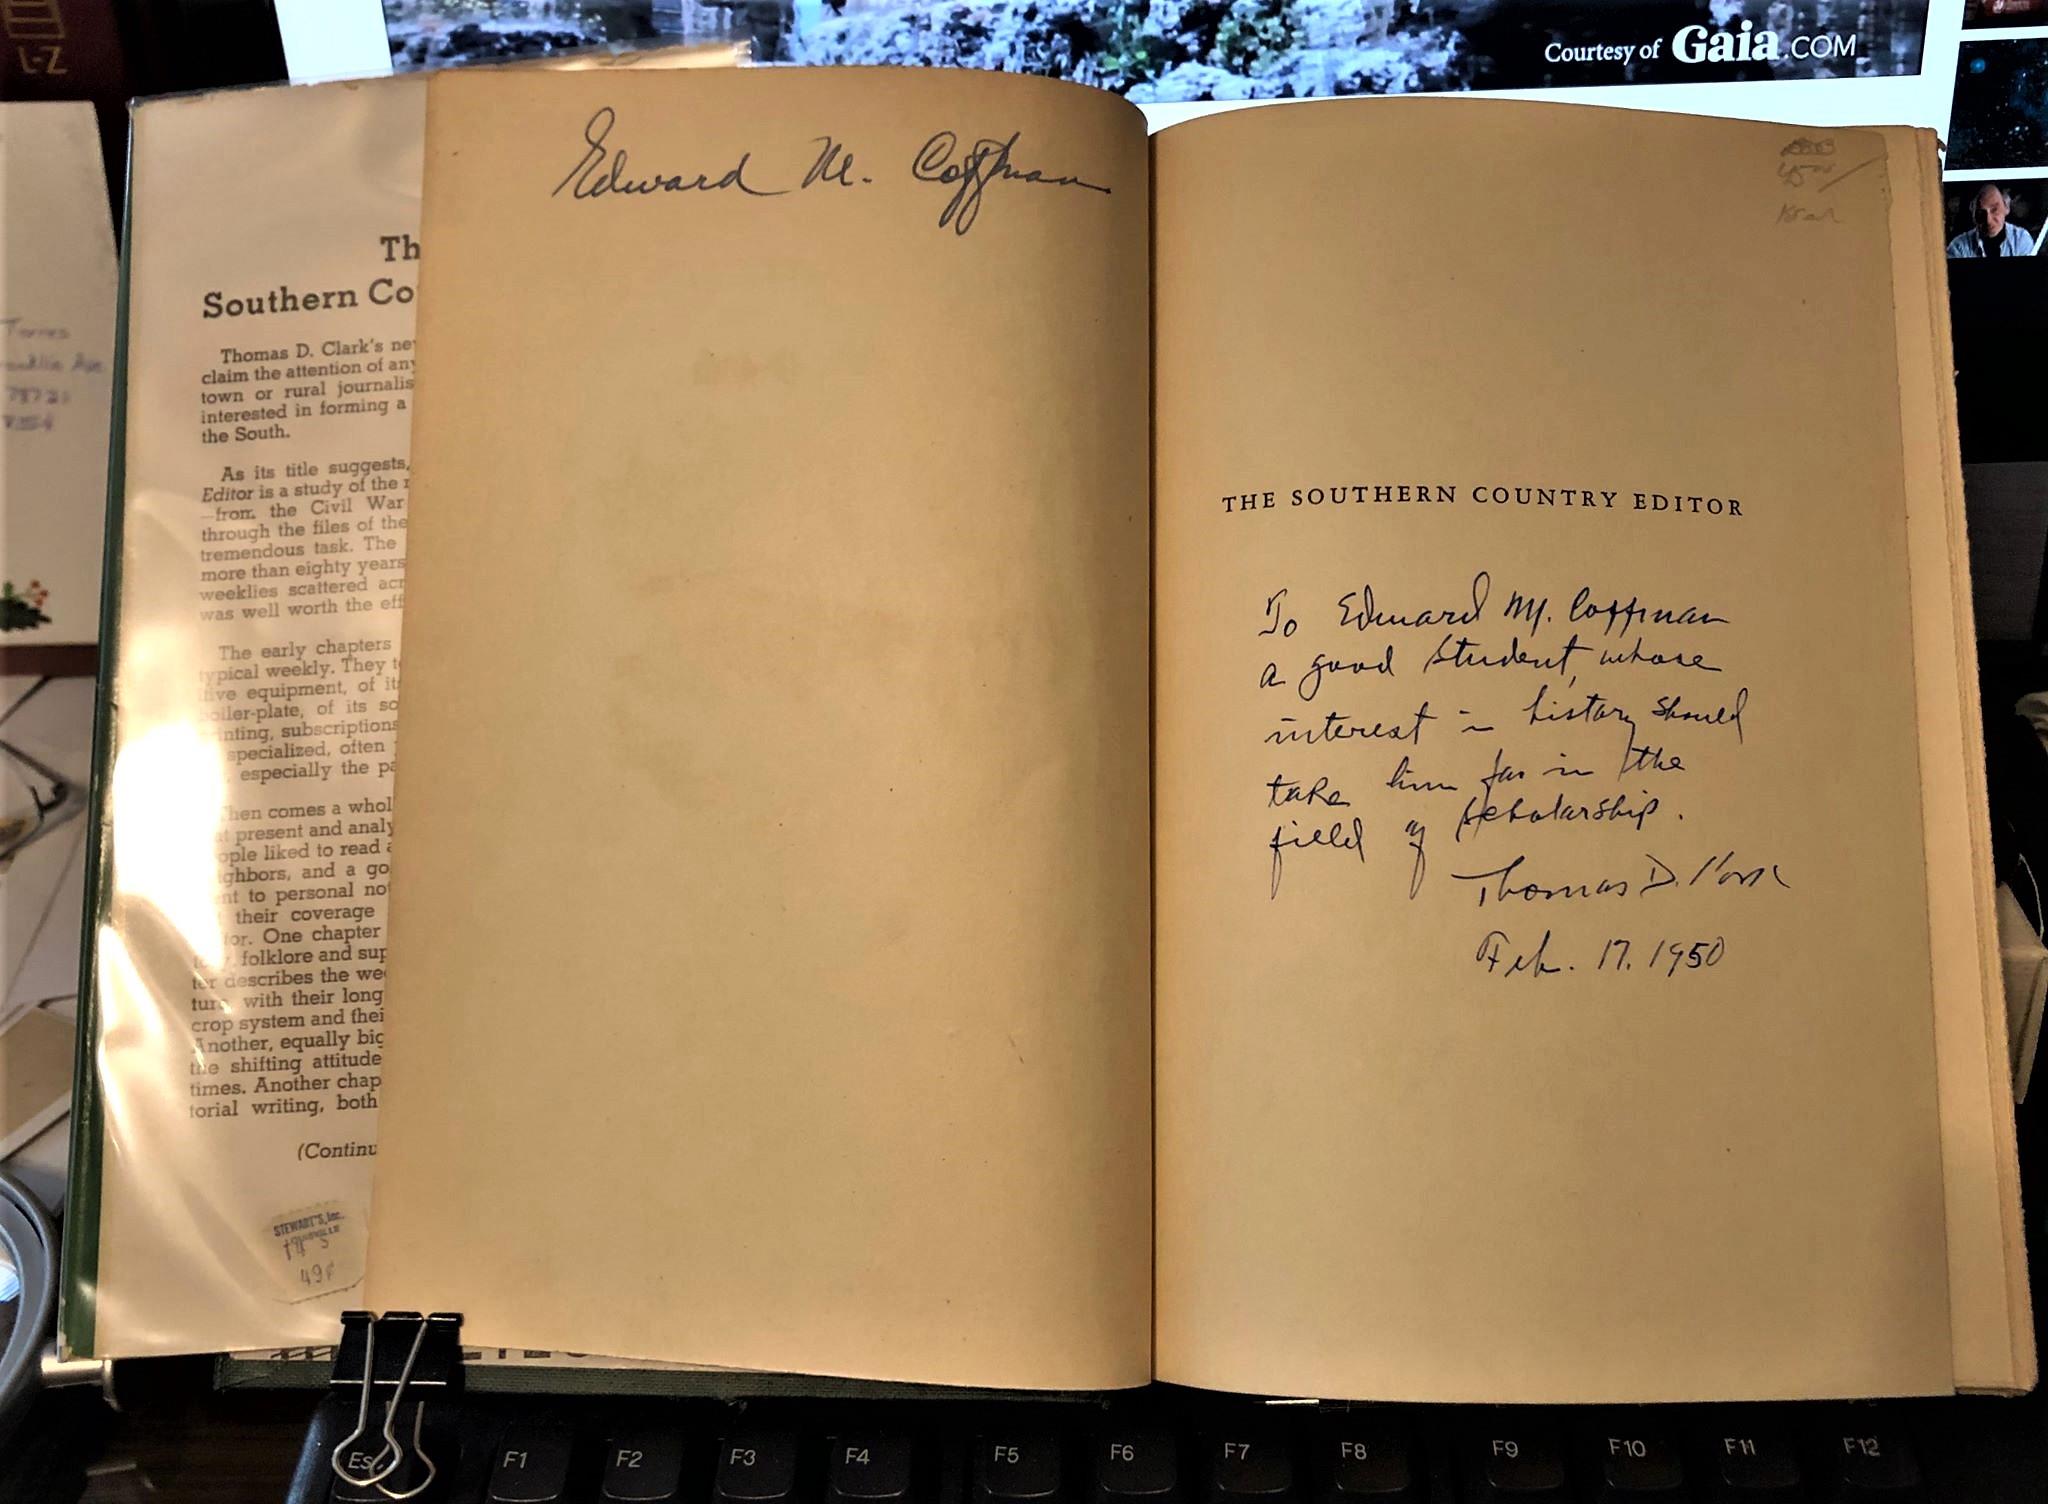 L-Z
Courtesy of Gaia.COM
Edward M. Coffman
Th
Southern Co
Thomas D. Clark's ne
claim the attention of any
town or rural journalis
interested in forming a
the South.
As its title suggests,
Editor is a study of the r
—from the Civil War
through the files of the
tremendous task. The
more than eighty years
weeklies scattered acr
was well worth the eff
The early chapters
typical weekly. They t
itive equipment, of it
boiler-plate, of its so
rinting, subscriptions
specialized, often
, especially the pa
hen comes a whol
at present and analy
ople liked to read a
ighbors, and a go
ent to personal not
their coverage
tor. One chapter
folklore and sup
ter describes the we
ture, with their long
crop system and thei
Another, equally big
the shifting attitude
times. Another chap
torial writing, both
(Continu
STEWART'S, Inc.
LOUISVILLE
49¢
THE SOUTHERN COUNTRY EDITOR
To Edward M. Coffman
a good student, whose
interest in history should
take him far in the
field of scholarship.
Thomas D. Clark
Feb. 17. 1950
Torres
Ave
78721
Esc F1 F2 F3 F4 F5 F6 F7 F8 F9 F10 F11 F12